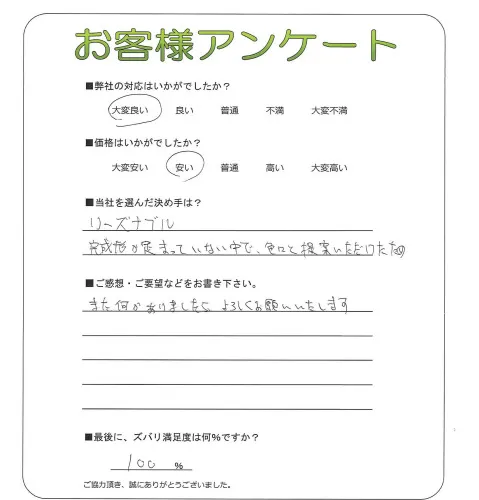 お客様アンケート
■弊社の対応はいかがでしたか？
大変良い 良い 普通 不満 大変不満
■価格はいかがでしたか？
大変安い 安い 普通 高い 大変高い
■当社を選んだ決め手は？
リーズナブル
完成形が定まっていない中で、色々と提案いただけたため
■ご感想・ご要望などをお書き下さい。
また何かありましたら、よろしくお願いいたします
■最後に、ズバリ満足度は何％ですか？
100 ％
ご協力頂き、誠にありがとうございました。